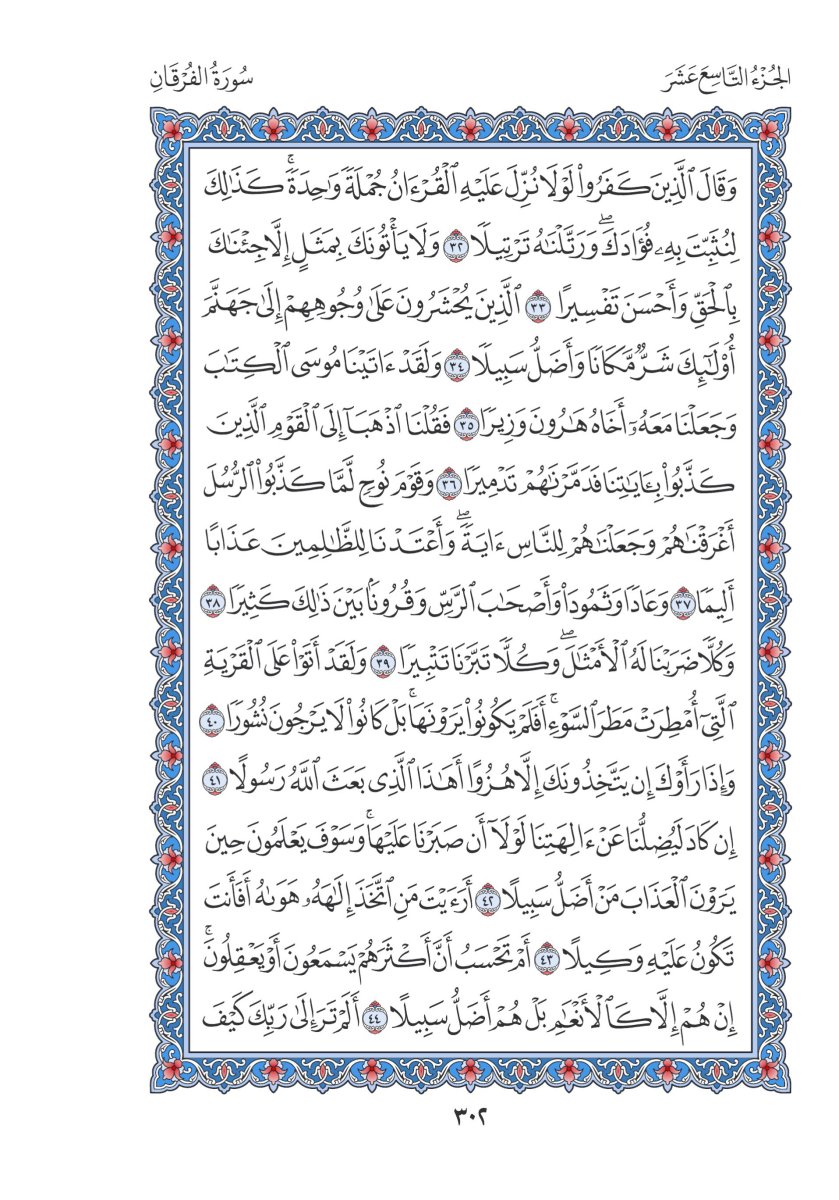 الجُزْءُ التَّاسِعَ عَشَرَ
سُورَةُ الفُرْقَانِ
وَقَالَ ٱلَّذِينَ كَفَرُوا۟ لَوْلَا نُزِّلَ عَلَيْهِ ٱلْقُرْءَانُ جُمْلَةً وَٰحِدَةً ۚ كَذَٰلِكَ
لِنُثَبِّتَ بِهِۦ فُؤَادَكَ ۖ وَرَتَّلْنَٰهُ تَرْتِيلًا ٣٢ وَلَا يَأْتُونَكَ بِمَثَلٍ إِلَّا جِئْنَٰكَ
بِٱلْحَقِّ وَأَحْسَنَ تَفْسِيرًا ٣٣ ٱلَّذِينَ يُحْشَرُونَ عَلَىٰ وُجُوهِهِمْ إِلَىٰ جَهَنَّمَ
أُو۟لَٰٓئِكَ شَرٌّ مَّكَانًا وَأَضَلُّ سَبِيلًا ٣٤ وَلَقَدْ ءَاتَيْنَا مُوسَى ٱلْكِتَٰبَ
وَجَعَلْنَا مَعَهُۥٓ أَخَاهُ هَٰرُونَ وَزِيرًا ٣٥ فَقُلْنَا ٱذْهَبَآ إِلَى ٱلْقَوْمِ ٱلَّذِينَ
كَذَّبُوا۟ بِـَٔايَٰتِنَا فَدَمَّرْنَٰهُمْ تَدْمِيرًا ٣٦ وَقَوْمَ نُوحٍ لَّمَّا كَذَّبُوا۟ ٱلرُّسُلَ
أَغْرَقْنَٰهُمْ وَجَعَلْنَٰهُمْ لِلنَّاسِ ءَايَةً ۖ وَأَعْتَدْنَا لِلظَّٰلِمِينَ عَذَابًا
أَلِيمًا ٣٧ وَعَادًا وَثَمُودَا۟ وَأَصْحَٰبَ ٱلرَّسِّ وَقُرُونًۢا بَيْنَ ذَٰلِكَ كَثِيرًا ٣٨
وَكُلًّا ضَرَبْنَا لَهُ ٱلْأَمْثَٰلَ ۖ وَكُلًّا تَبَّرْنَا تَتْبِيرًا ٣٩ وَلَقَدْ أَتَوْا۟ عَلَى ٱلْقَرْيَةِ
ٱلَّتِىٓ أُمْطِرَتْ مَطَرَ ٱلسَّوْءِ ۚ أَفَلَمْ يَكُونُوا۟ يَرَوْنَهَا ۚ بَلْ كَانُوا۟ لَا يَرْجُونَ نُشُورًا ٤٠
وَإِذَا رَأَوْكَ إِن يَتَّخِذُونَكَ إِلَّا هُزُوًا أَهَٰذَا ٱلَّذِى بَعَثَ ٱللَّهُ رَسُولًا ٤١
إِن كَادَ لَيُضِلُّنَا عَنْ ءَالِهَتِنَا لَوْلَآ أَن صَبَرْنَا عَلَيْهَا ۚ وَسَوْفَ يَعْلَمُونَ حِينَ
يَرَوْنَ ٱلْعَذَابَ مَنْ أَضَلُّ سَبِيلًا ٤٢ أَرَءَيْتَ مَنِ ٱتَّخَذَ إِلَٰهَهُۥ هَوَىٰهُ أَفَأَنتَ
تَكُونُ عَلَيْهِ وَكِيلًا ٤٣ أَمْ تَحْسَبُ أَنَّ أَكْثَرَهُمْ يَسْمَعُونَ أَوْ يَعْقِلُونَ ۚ
إِنْ هُمْ إِلَّا كَٱلْأَنْعَٰمِ بَلْ هُمْ أَضَلُّ سَبِيلًا ٤٤ أَلَمْ تَرَ إِلَىٰ رَبِّكَ كَيْفَ
٣٠٢